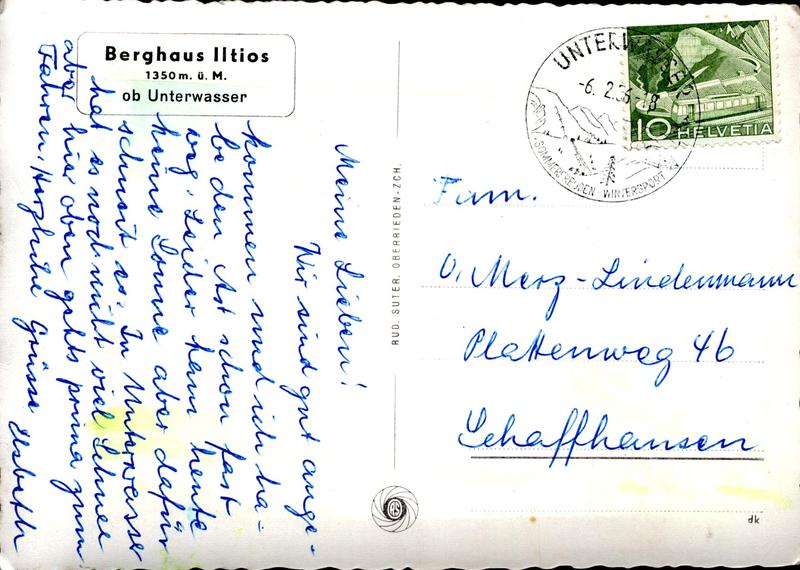 Berghaus Iltios
1350 m. ü. M.
ob Unterwasser
Meine Lieben!
Wir sind gut ange-
kommen und ich ha-
be den Ast schon fast
weg. Leider kam heute
keine Sonne aber dafür
schneit es. In Unterwasser
hat es noch nicht viel Schnee
aber hier oben gehts prima zum
Fahren. Herzliche Grüsse Elsbeth
RUD. SUTER. OBERRIEDEN-ZCH.
RS
UNTERWASSER
-6. 2.56-18
SOMMERFREUDEN WINTERSPORT
10 HELVETIA
Fam.
O. Merz-Lindenmann
Plattenweg 46
Schaffhausen
dk